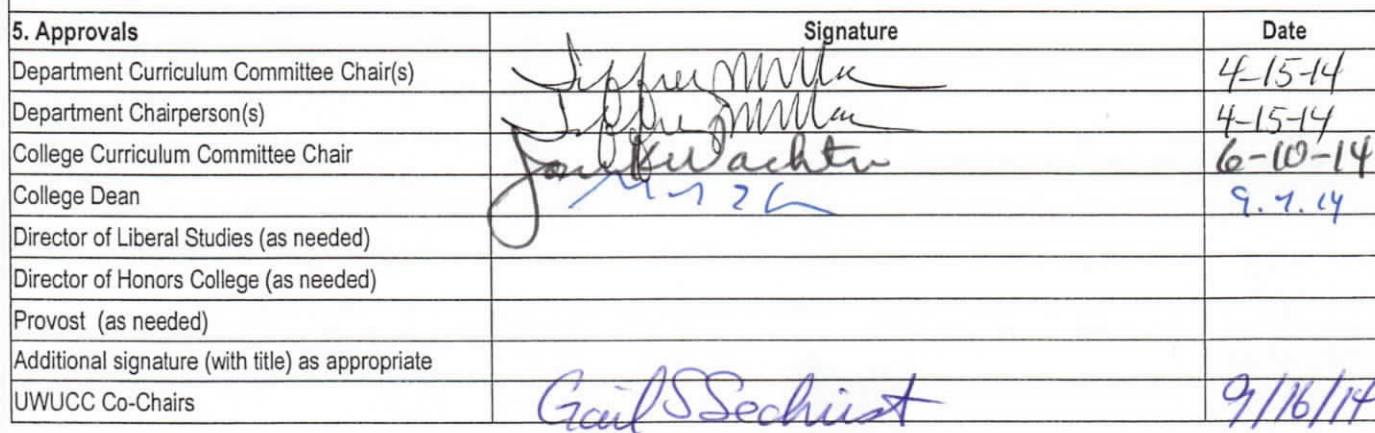 5. Approvals Signature Date
Department Curriculum Committee Chair(s) 4-15-14
Department Chairperson(s) 4-15-14
College Curriculum Committee Chair 6-10-14
College Dean
Director of Liberal Studies (as needed)
Director of Honors College (as needed)
Provost (as needed)
Additional signature (with title) as appropriate
UWUCC Co-Chairs Gail S Sechrist 9/16/14